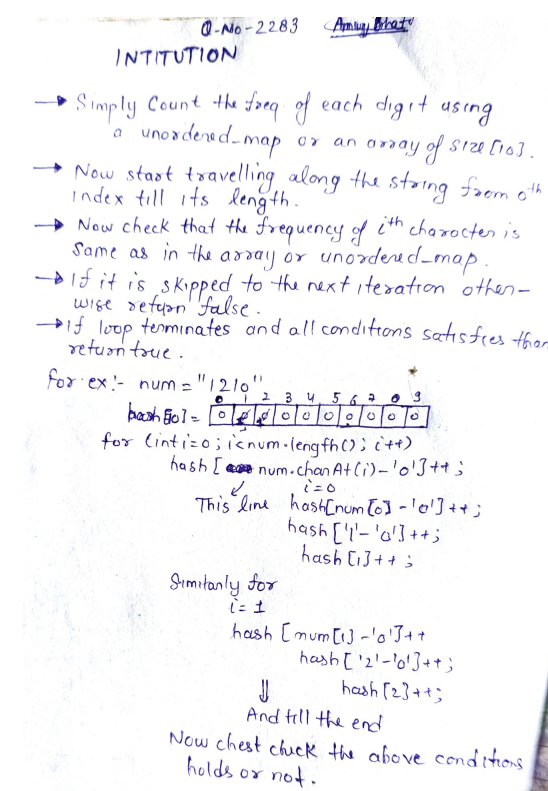 Q-No-2283
INTITUTION
→ Simply Count the freq of each digit using
a unordered_map or an array of size [10].
→ Now start travelling along the string from 0th
index till its length.
→ Now check that the frequency of ith character is
Same as in the array or unordered_map.
→ If it is skipped to the next iteration other-
wise return false.
→ If loop terminates and all conditions satisfies than
return true.
for ex:- num = "1210"
0 1 2 3 4 5 6 7 8 9
hash [10] = 0 0 0 0 0 0 0
for (int i=0; i<num.length(); i++)
hash [ num.charAt(i)-'0']++;
i=0
This line hash[num[0]-'0']++;
hash ['1'-'0']++;
hash [1]++;
Similarly for
i=1
hash [num[1]-'0']++
hash ['2'-'0']++;
⇓ hash [2]++;
And till the end
Now check the above conditions
holds or not.